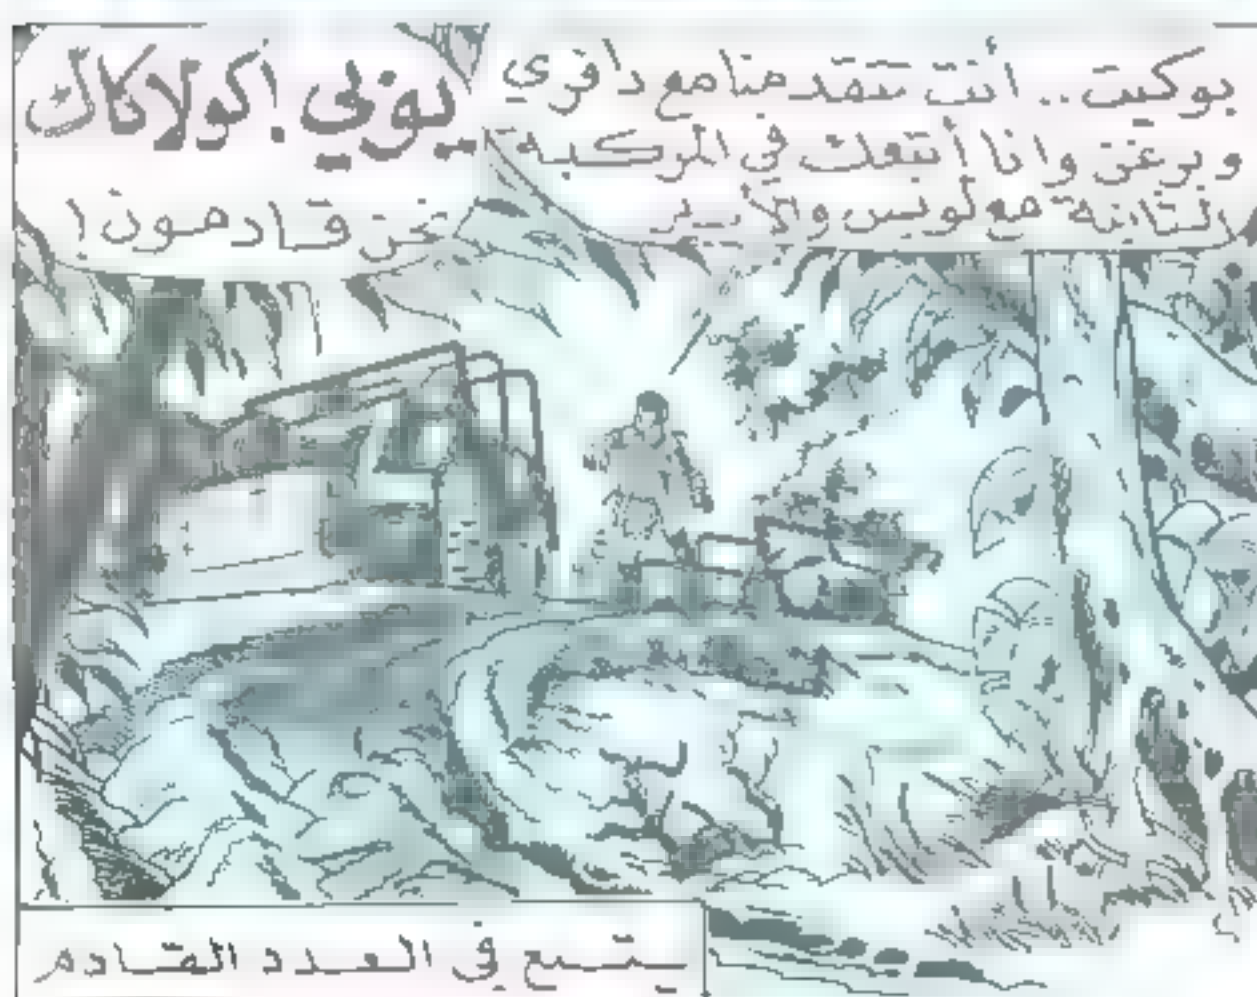 بوكيت.. أنت تتقدمنا مع دافري
وبرغن وانا أتبعك في المركبة
الثانية مع لويس والأسير
يوبي! كولاكاك
نحن قادمون!
يتبع في العدد القادم